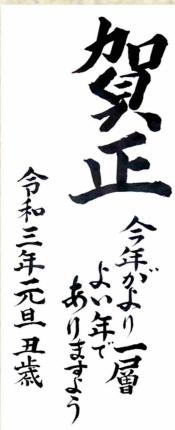 賀正
今年がより一層
よい年で
ありますよう
令和三年元旦丑歳